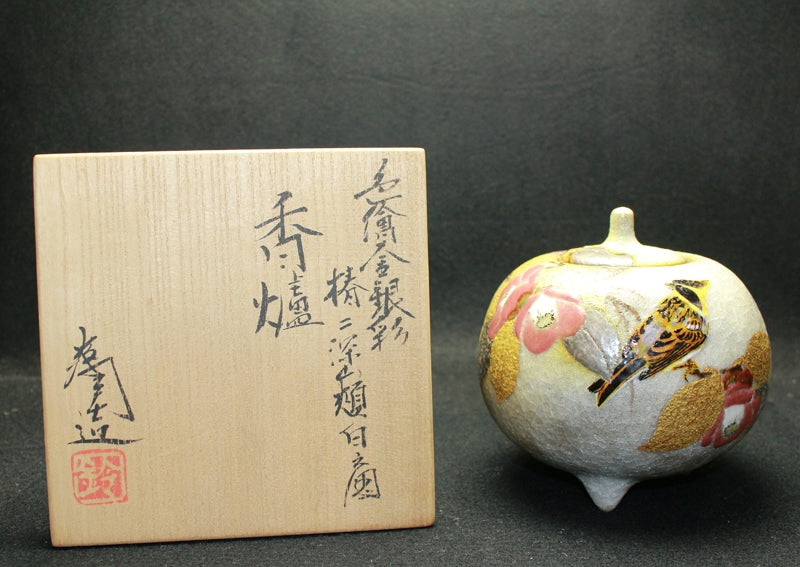 色絵金銀彩
椿ニ深山頬白之図
香爐
造
鈴